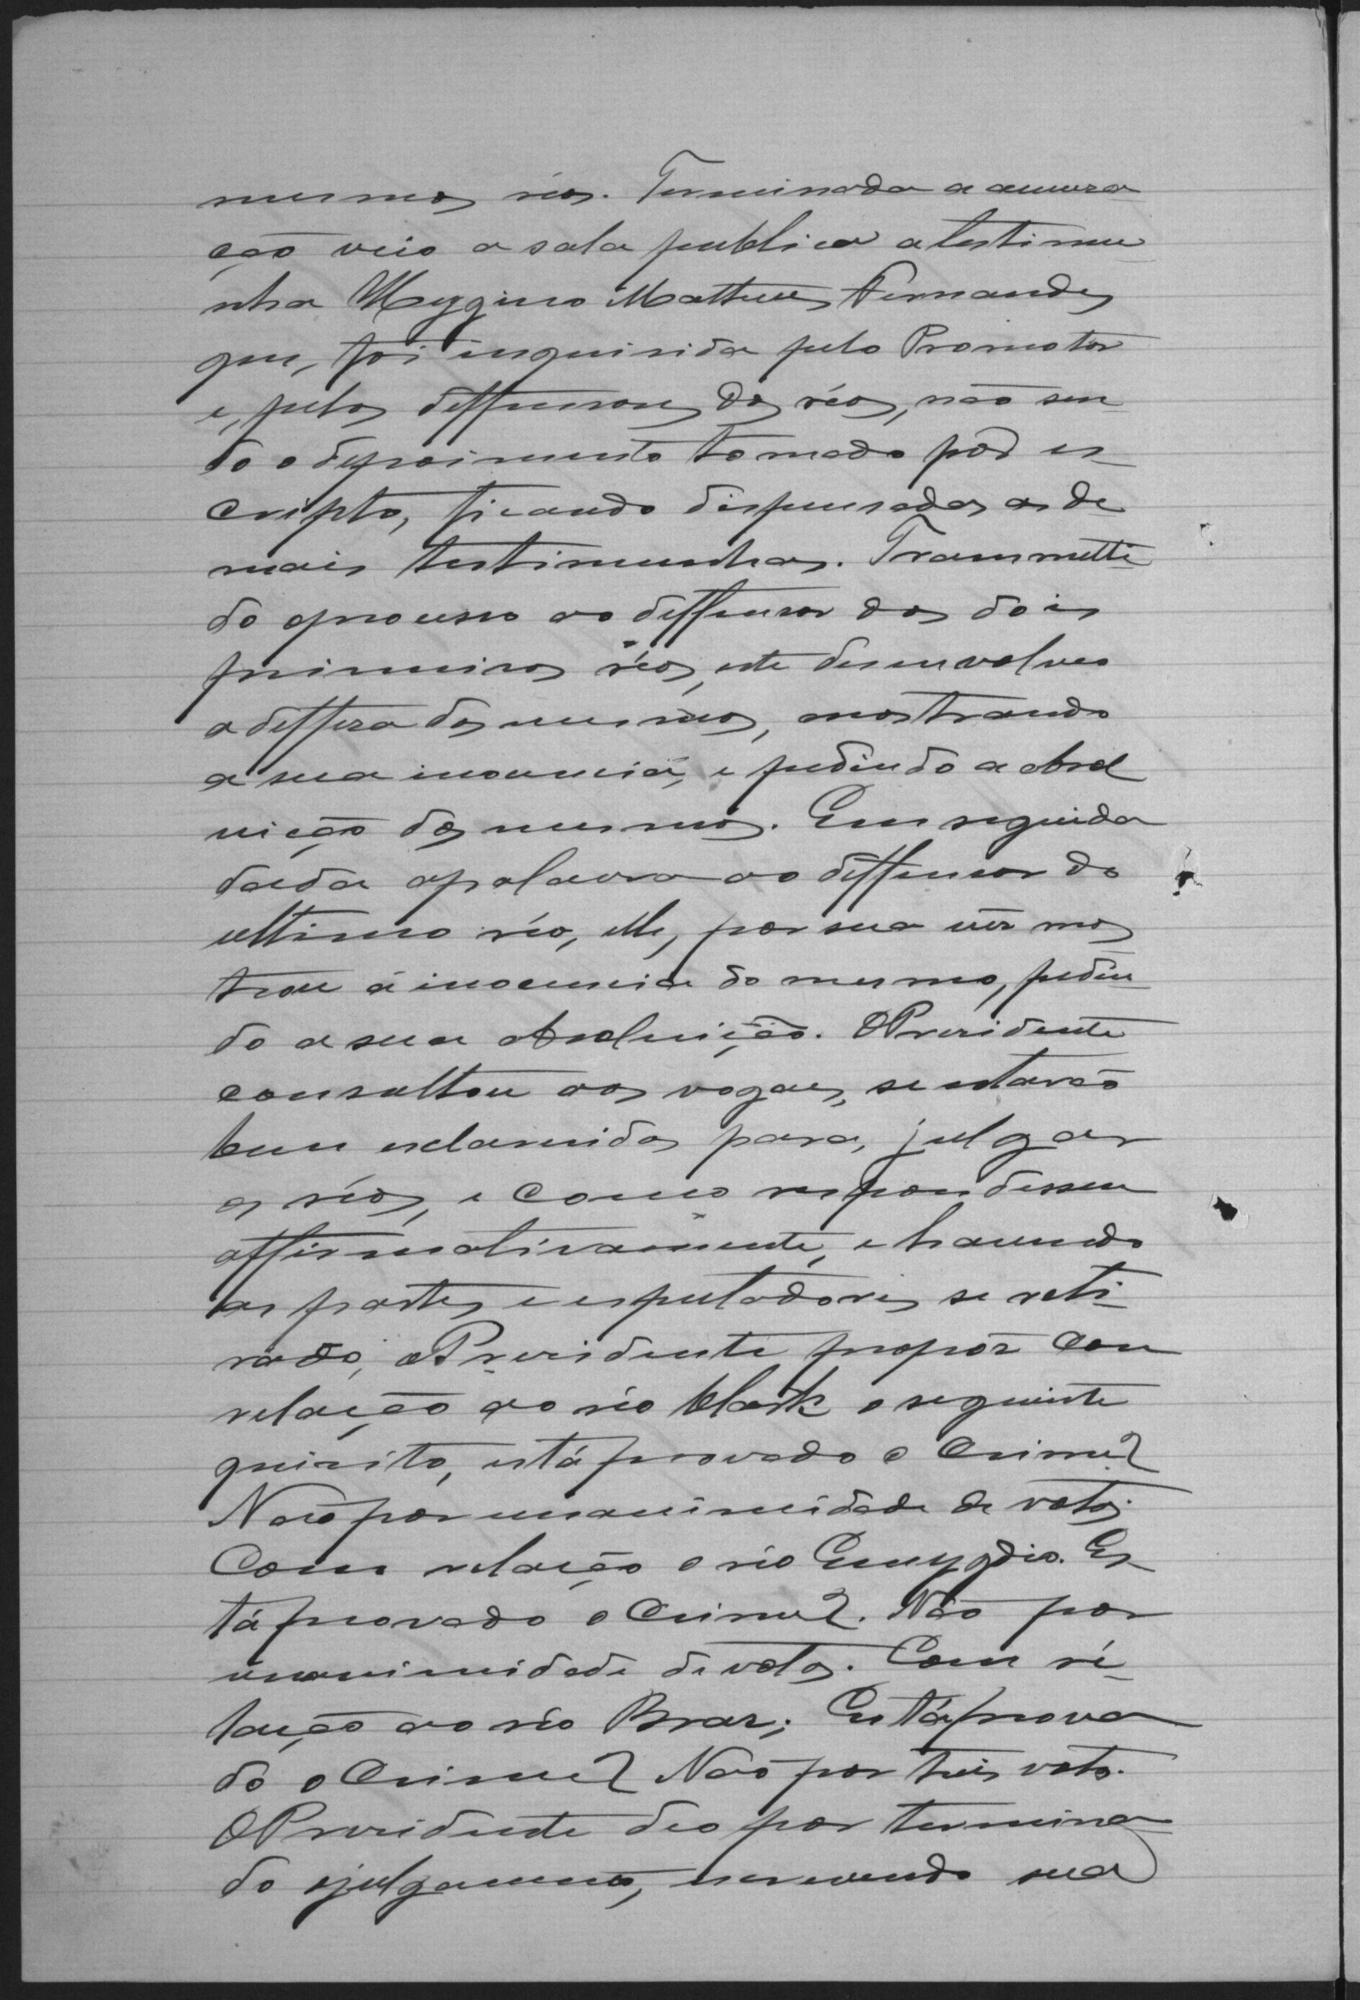 mesmos réos. Terminada a accusa
ção veio a sala publica a testimu
nha Hyggino Mattheus Fernandes
que, foi inquirida pelo Promotor
e, pelos deffensores dos réos, não sen
do o depoimento tomado por es
cripto, ficando dispensadas as de
mais testimunhas. Transmetti
do o processo ao deffensor dos dois
primeiros réos, este desenvolveo
a deffesa dos mesmos, mostrando
a sua inocencia, e pedindo a absol
vição dos mesmos. Em seguida
dada a palavra ao deffensor do
ultimo réo, elle, por sua vez mos
trou a inocencia do mesmo, pedin
do a sua absolvição. O Presidente
consultou aos vogaes, se estavão
bem esclarecidos para, julgar
os réos, e como respondessem
affirmativamente, e havendo
as partes e espectadores se reti
rado, o Presidente propoz com
relação ao réo Clark o seguinte
quisito, está provado o crime?
Não por unanimidade de votos.
Com relação o réo Emygdio. Es
tá provado o crime?. Não por
unanimidade de votos. Com re
lação ao réo Braz; Está prova
do o crime? Não por tres votos.
O Presidente deo por termina
do o julgamento, escrevendo sua